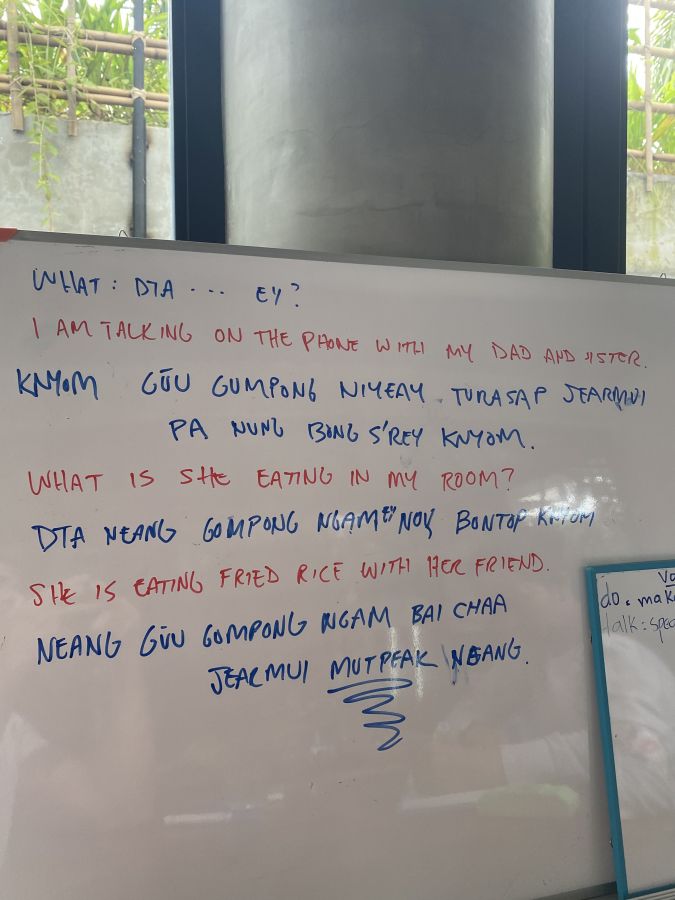 WHAT: DTA ... EY?
I AM TALKING ON THE PHONE WITH MY DAD AND SISTER.
KNYOM GŪU GUMPONG NIYEAY TURASAP JEARMUI
PA NUNG BONG S'REY KNYOM.
WHAT IS SHE EATING IN MY ROOM?
DTA NEANG GOMPONG NGAM EY NOV BONTOP KNYOM
SHE IS EATING FRIED RICE WITH HER FRIEND.
NEANG GŪU GOMPONG NGAM BAI CHAA
JEARMUI MUTPEAK NEANG.
do. mak
talk: spea